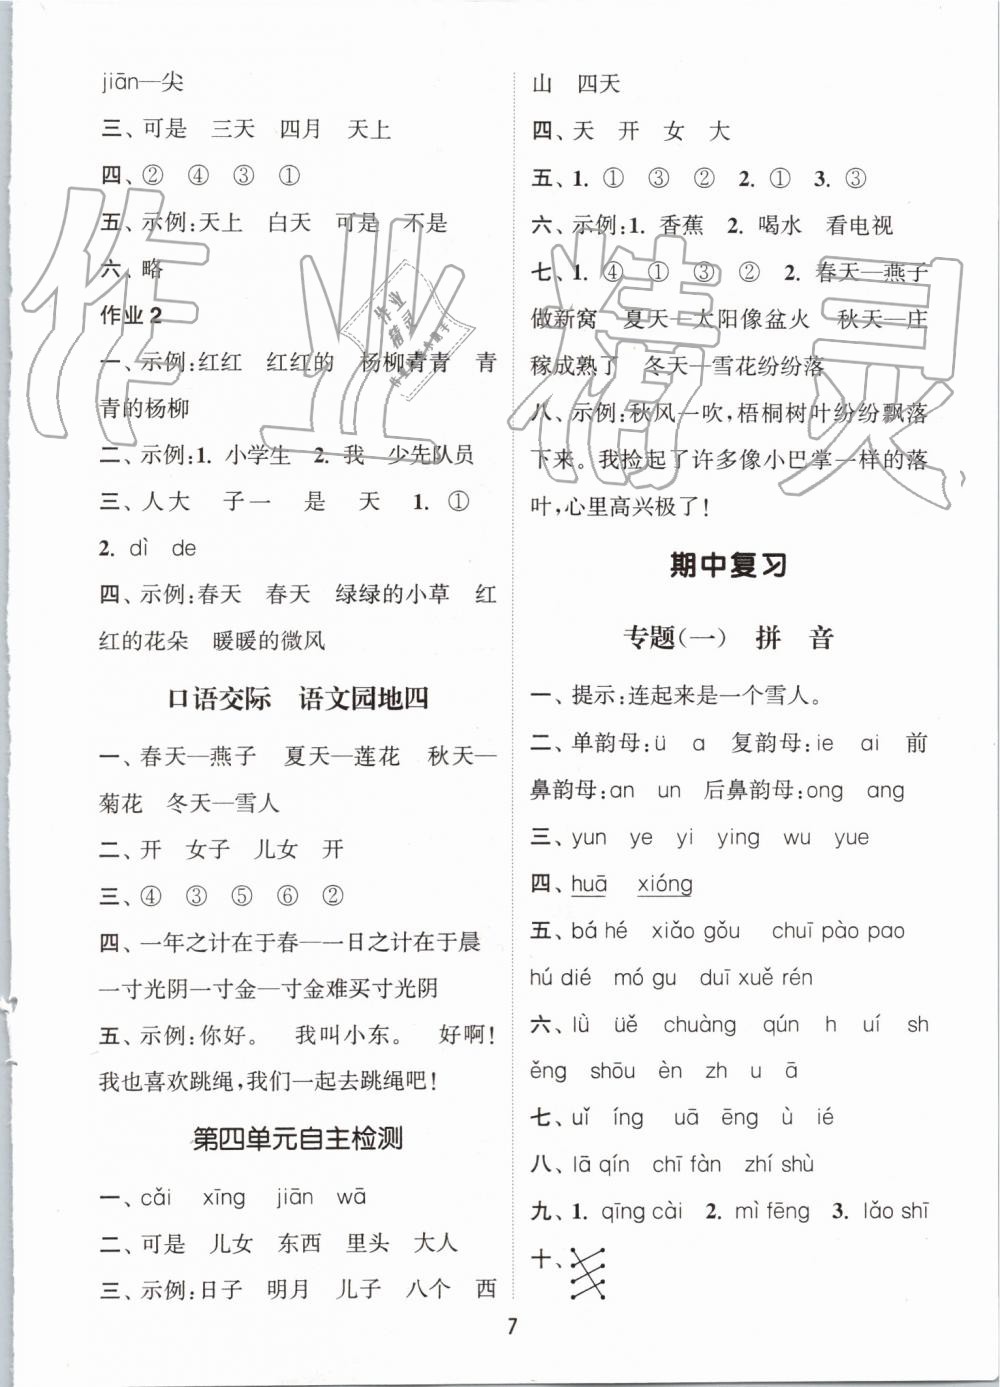 jiān—尖
三、可是 三天 四月 天上
四、② ④ ③ ①
五、示例:天上 白天 可是 不是
六、略
作业 2
一、示例:红红 红红的 杨柳青青 青
青的杨柳
二、示例:1. 小学生 2. 我 少先队员
三、人大 子一 是 天 1. ①
2. dì de
四、示例:春天 春天 绿绿的小草 红
红的花朵 暖暖的微风
口语交际 语文园地四
一、春天—燕子 夏天—莲花 秋天—
菊花 冬天—雪人
二、开 女子 儿女 开
三、④ ③ ⑤ ⑥ ②
四、一年之计在于春—一日之计在于晨
一寸光阴一寸金—寸金难买寸光阴
五、示例:你好。 我叫小东。 好啊!
我也喜欢跳绳,我们一起去跳绳吧!
第四单元自主检测
一、cǎi xīng jiān wā
二、可是 儿女 东西 里头 大人
三、示例:日子 明月 儿子 八个 西
山 四天
四、天 开 女 大
五、1. ① ③ ② 2. ① 3. ③
六、示例:1. 香蕉 2. 喝水 看电视
七、1. ④ ① ③ ② 2. 春天—燕子
做新窝 夏天—太阳像盆火 秋天—庄
稼成熟了 冬天—雪花纷纷落
八、示例:秋风一吹,梧桐树叶纷纷飘落
下来。我捡起了许多像小巴掌一样的落
叶,心里高兴极了!
期中复习
专题(一) 拼 音
一、提示:连起来是一个雪人。
二、单韵母:ü a 复韵母:ie ai 前
鼻韵母:an un 后鼻韵母:ong ang
三、yun ye yi ying wu yue
四、huā xióng
五、bá hé xiǎo gǒu chuī pào pao
hú dié mó gu duī xuě rén
六、lǜ üě chuàng qún h uí sh
ěng shōu èn zh u ā
七、uǐ íng uā ēng ù ié
八、lā qín chī fàn zhí shù
九、1. qīng cài 2. mì fēng 3. lǎo shī
十、
7
作业精灵